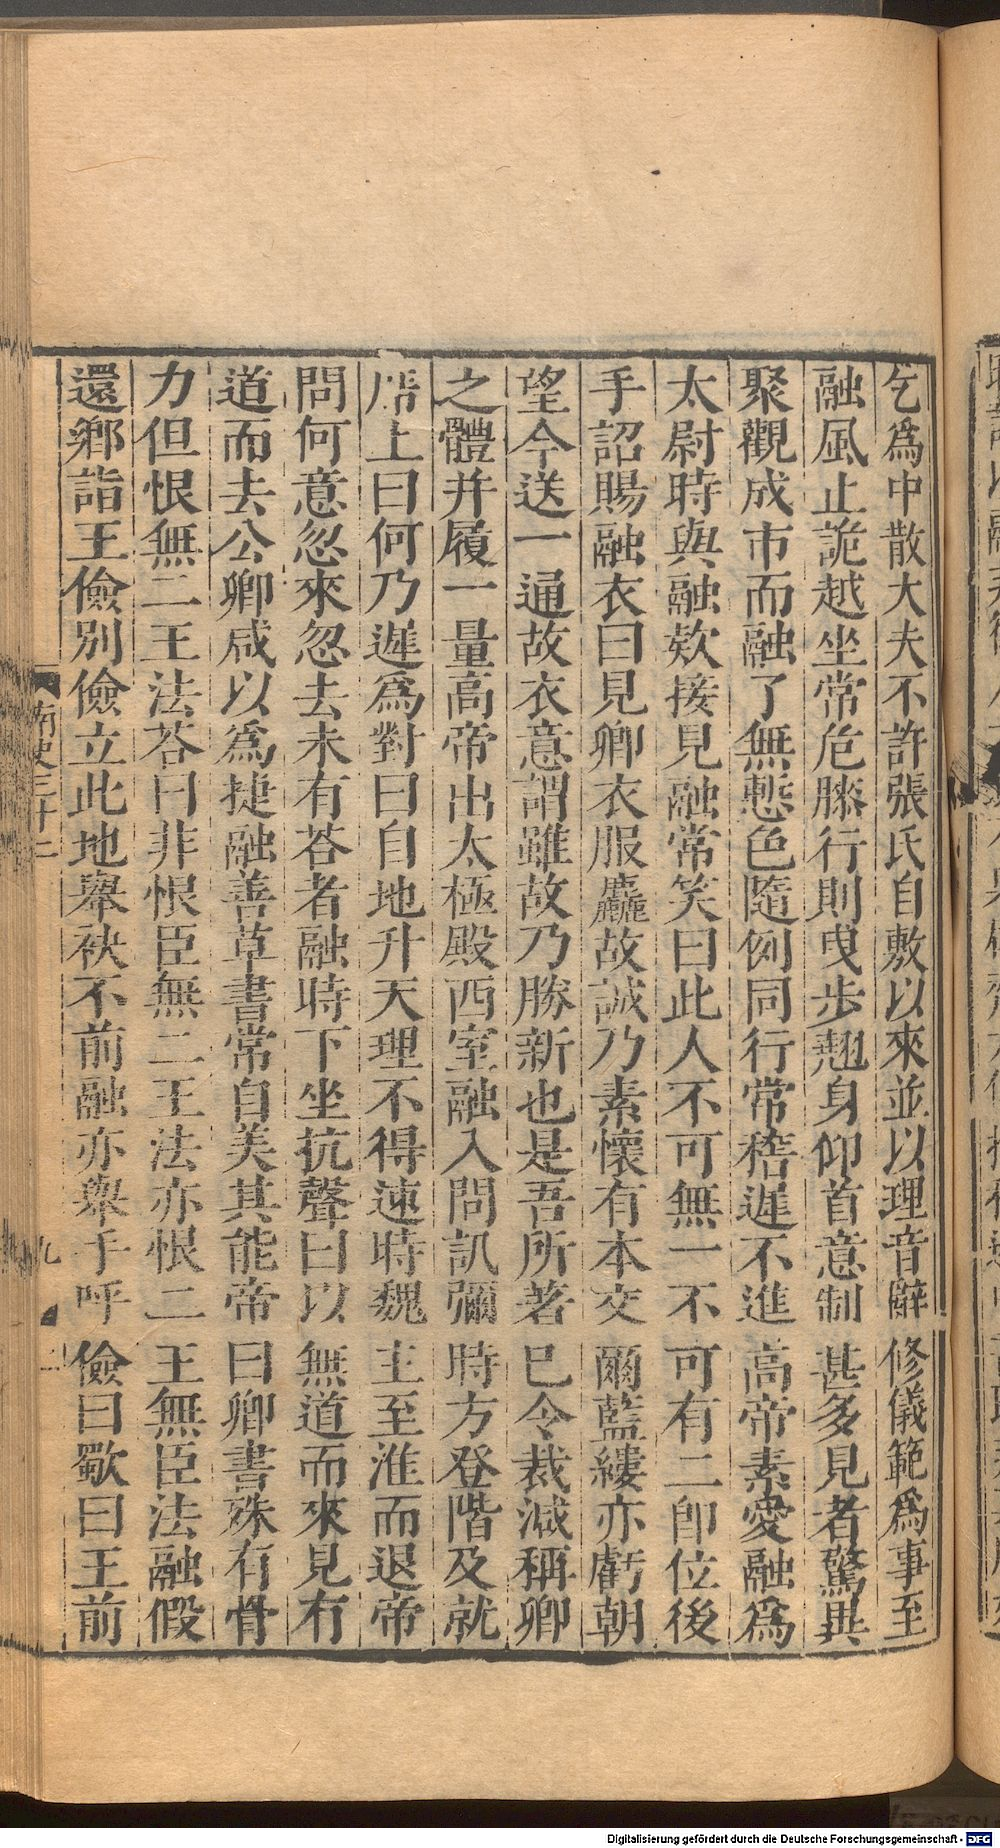 乞爲中散大夫不許張氏自敷以來並以理音辭修儀範爲事至
融風止詭越坐常危膝行則曳步翹身仰首意制甚多見者驚異
聚觀成市而融了無慙色隨例同行常稽遲不進高帝素愛融爲
太尉時與融欵接見融常笑曰此人不可無一不可有二卽位後
手詔賜融衣曰見卿衣服麤故誠乃素懷有本交爾藍縷亦虧朝
望今送一通故衣意謂雖故乃勝新也是吾所著已令裁減稱卿
之體并履一量高帝出太極殿西室融入問訊彌時方登階及就
席上曰何乃遲爲對曰自地升天理不得速時魏主至淮而退帝
問何意忽來忽去未有荅者融時下坐抗聲曰以無道而來見有
道而去公卿咸以爲捷融善草書常自美其能帝曰卿書殊有骨
力但恨無二王法荅曰非恨臣無二王法亦恨二王無臣法融假
還鄉詣王儉別儉立此地舉袂不前融亦舉手呼儉曰歜曰王前
南史三十二
九
Digitalisierung gefördert durch die Deutsche Forschungsgemeinschaft - DFG